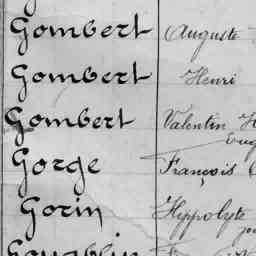 Gombert Auguste
Gombert Henri
Gombert Valentin
Gorge François
Gorin Hippolyte